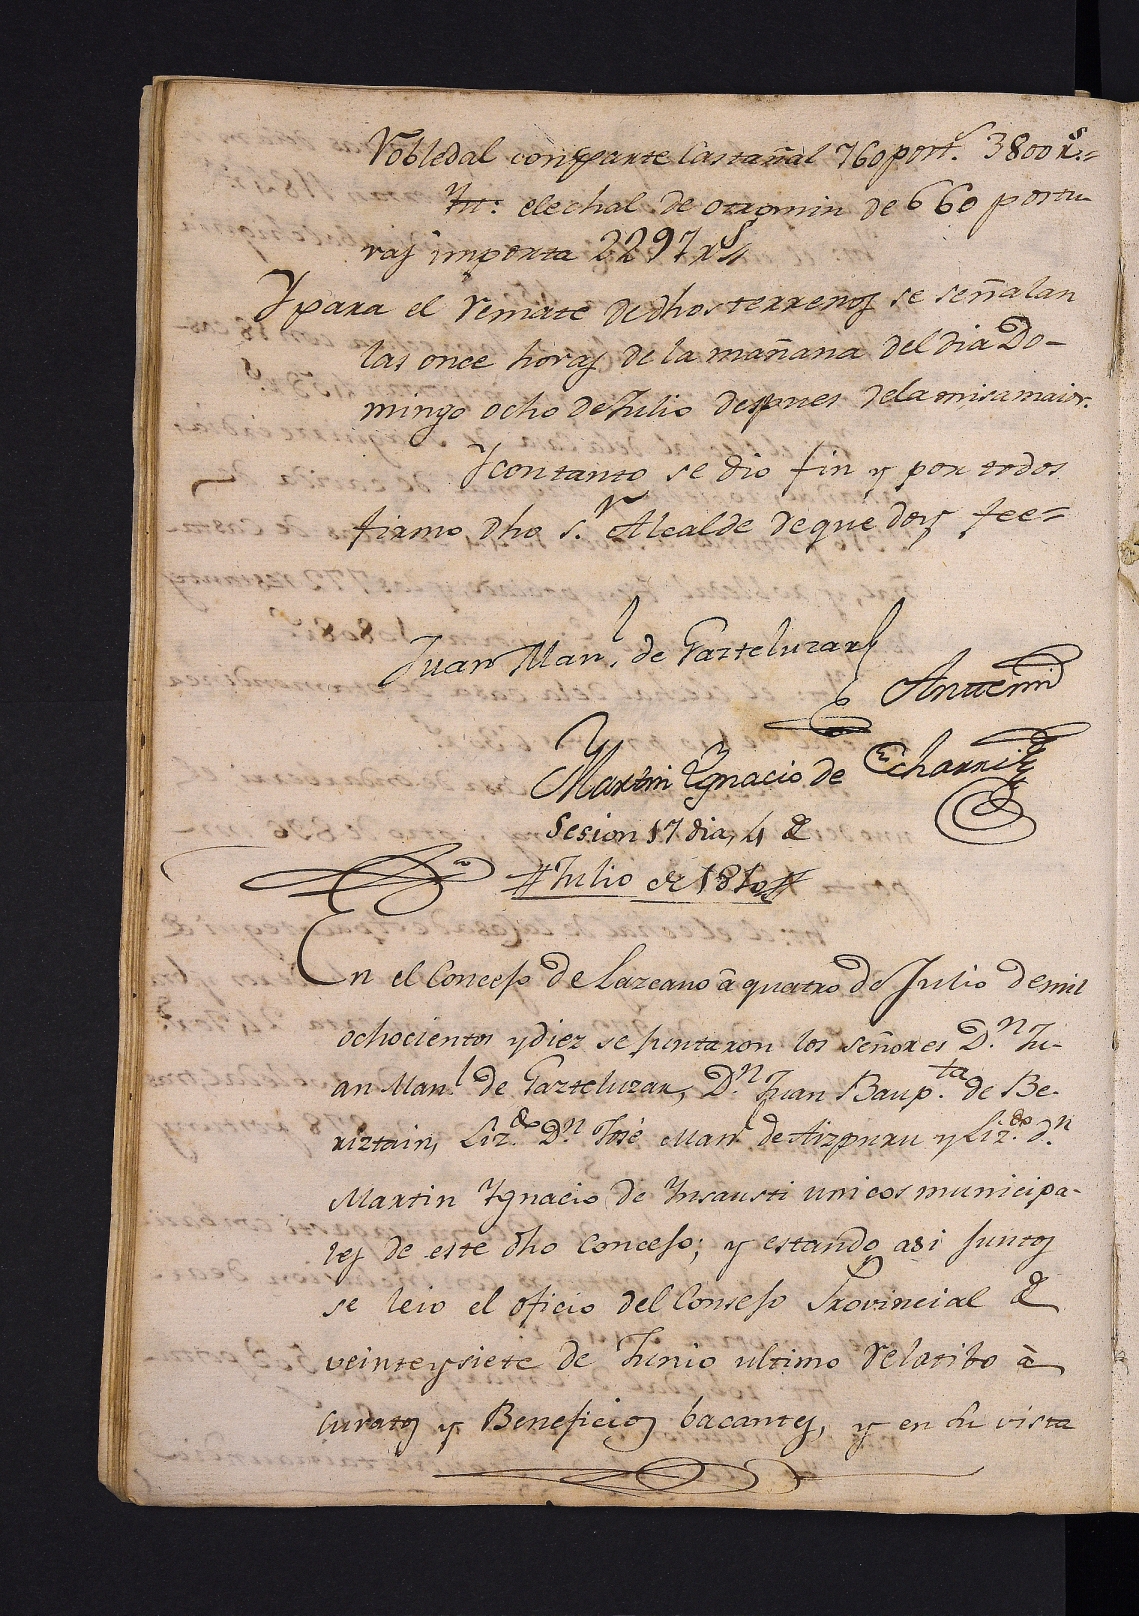 Robledal con parte Castañal 760 port.s 3800 r.s=
Yt: elechal de otromin de 660 postu
ras importa 2297 r.s
Y para el remate de dhos terrenos se señalan
las once horas de la mañana del dia Do-
mingo ocho de Julio despues dela misa maior.
Y con tanto se dio fin y por todos
firmo dho s.r Alcalde de que doy fee=
Juan Man.l de Gazteluzar
Antemi
Martin Ygnacio de Echarri
Sesion 17 dia, 4 de
Julio de 1810
En el Concejo de Lazcano à quatro de Julio de mil
ochocientos y diez se juntaron los señores D.n Ju-
an Man.l de Gazteluzar, D.n Juan Baup.ta de Be-
riztain, Liz.do D.n José Man.l de Aizpuru y Liz.do d.n
Martin Ygnacio de Ynsausti unicos municipa-
les de este dho Concejo; y estando asi juntos
se leio el oficio del Consejo Provincial de
veinte y siete de Junio ultimo relatibo à
Curatos y Beneficios bacantes, y en su vista